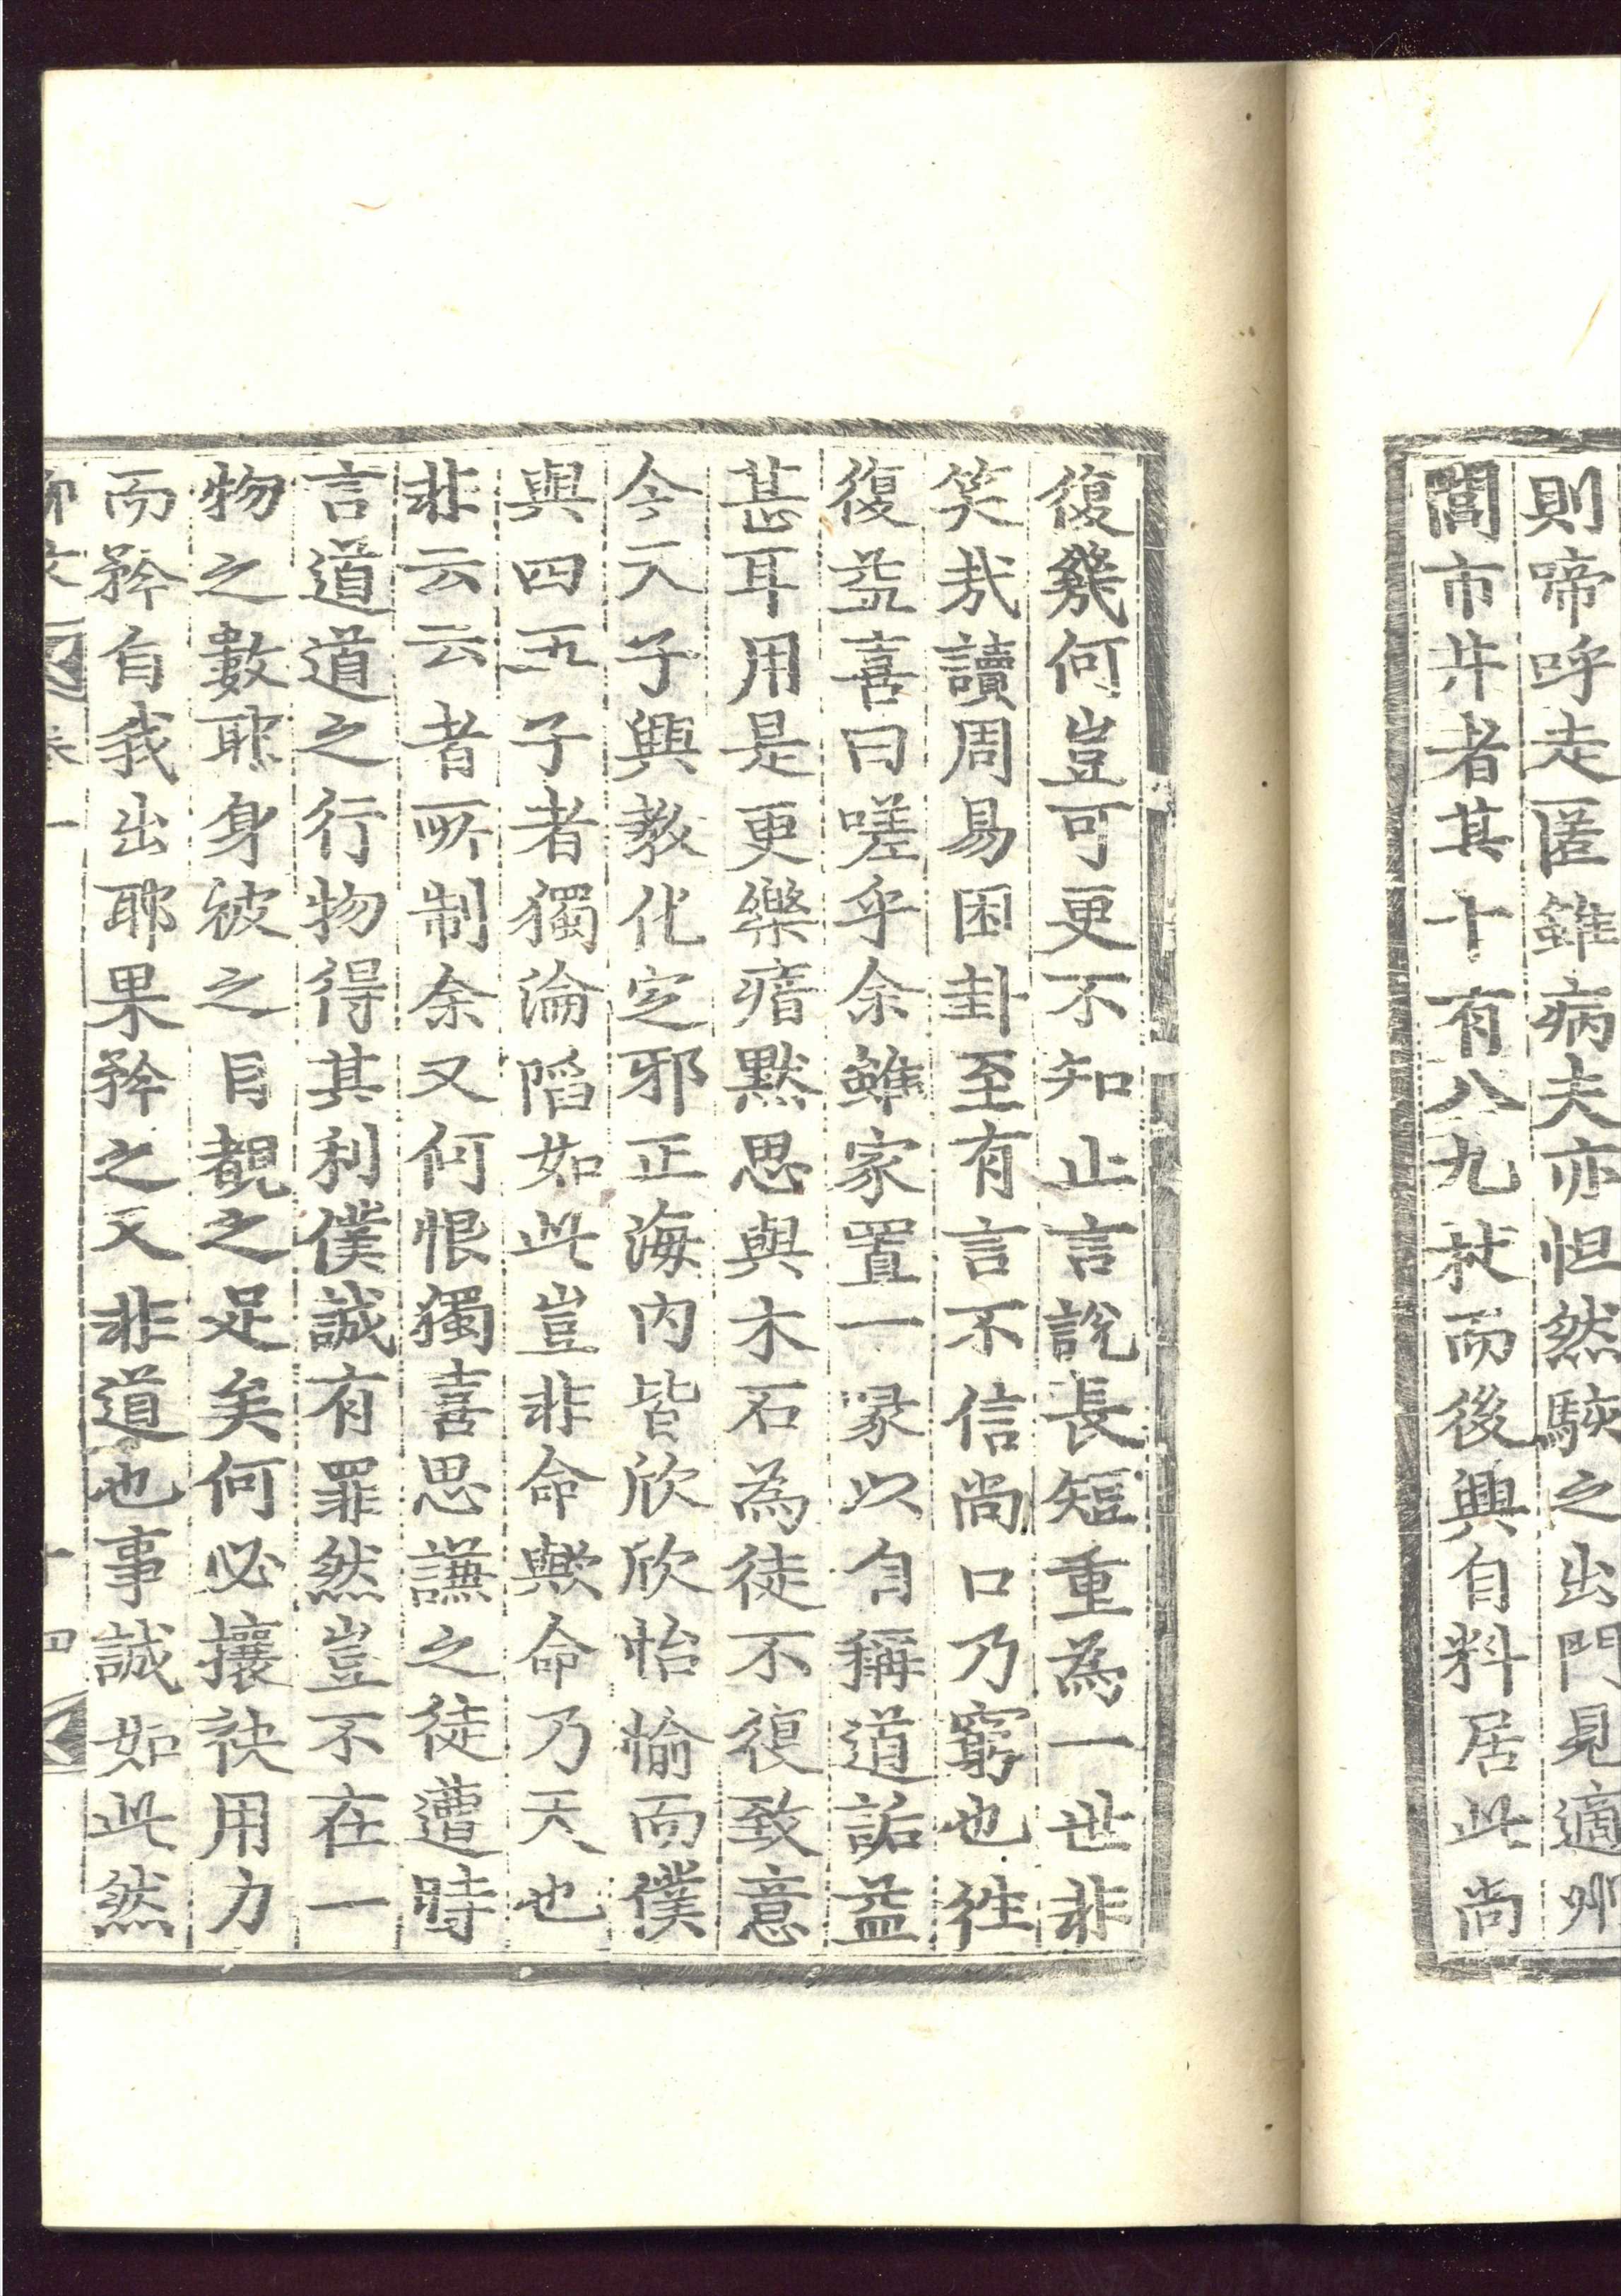 則啼呼走匿雖病夫亦怛然駭之出門見適州
閭市井者其十有八九杖而後興自料居此尚
復幾何豈可更不知止言說長短重為一世非
笑㢤讀周易困卦至有言不信尚口乃窮也往
復益喜曰嗟乎余雖家置一喙以自稱道詬益
甚耳用是更樂瘖默思與木石為徒不復致意
今天子興教化定邪正海内皆欣欣怡愉而僕
與四五子者獨淪陷如此豈非命歟命乃天也
非云云者所制余又何恨獨喜思謙之徒遭時
言道道之行物得其利僕誠有罪然豈不在一
物之數耶身被之目覩之足矣何必攘袂用力
而矜自我出耶果矜之又非道也事誠如此然
柳文 卷一 十四